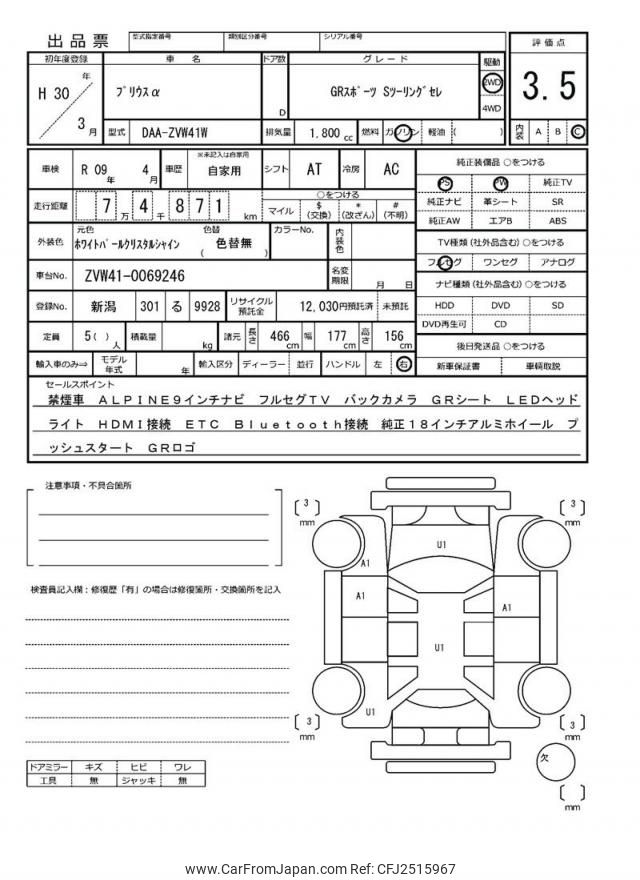 出品票
型式指定番号 類別区分番号 シリアル番号
評価点
3.5
内装 A B C
初年度登録 車名 ドア数 グレード 駆動
H 30 年 3 月
プリウスα D GRスポーツ Sツーリングセレ
2WD
4WD
型式 DAA-ZVW41W 排気量 1,800 cc 燃料 ガソリン 軽油 ( )
車検 R 09 年 4 月 車歴 ※未記入は自家用 自家用 シフト AT 冷房 AC
走行距離 7 万 4 千 8 7 1 km
○をつける
マイル $ (交換) * (改ざん) # (不明)
外装色 元色 ホワイトパールクリスタルシャイン 色替 ( 色替無 ) カラーNo. 内装色
車台No. ZVW41-0069246 名変期限 月 日
登録No. 新潟 301 る 9928 リサイクル預託金 12,030円預託済 未預託
定員 5( ) 人 積載量 kg 諸元 長さ 466 cm 幅 177 cm 高さ 156 cm
輸入車のみ⇒ モデル年式 年 輸入区分 ディーラー 並行 ハンドル 左 右
純正装備品 ○をつける
PS PW 純正TV
純正ナビ 革シート SR
純正AW エアB ABS
TV種類(社外品含む)○をつける
フルセグ ワンセグ アナログ
ナビ種類(社外品含む)○をつける
HDD DVD SD
DVD再生可 CD
後日発送品 ○をつける
新車保証書 車輌取説
セールスポイント
禁煙車 ALPINE9インチナビ フルセグTV バックカメラ GRシート LEDヘッド
ライト HDMI接続 ETC Bluetooth接続 純正18インチアルミホイール プ
ッシュスタート GRロゴ
注意事項・不具合箇所
検査員記入欄：修復歴「有」の場合は修復箇所・交換箇所を記入
ドアミラー キズ ヒビ ワレ
工具 無 ジャッキ 無
3 mm
3 mm
U1
A1
A1
A1
U1
U1
3 mm
3 mm
欠
mm
www.CarFromJapan.com Ref: CFJ2515967